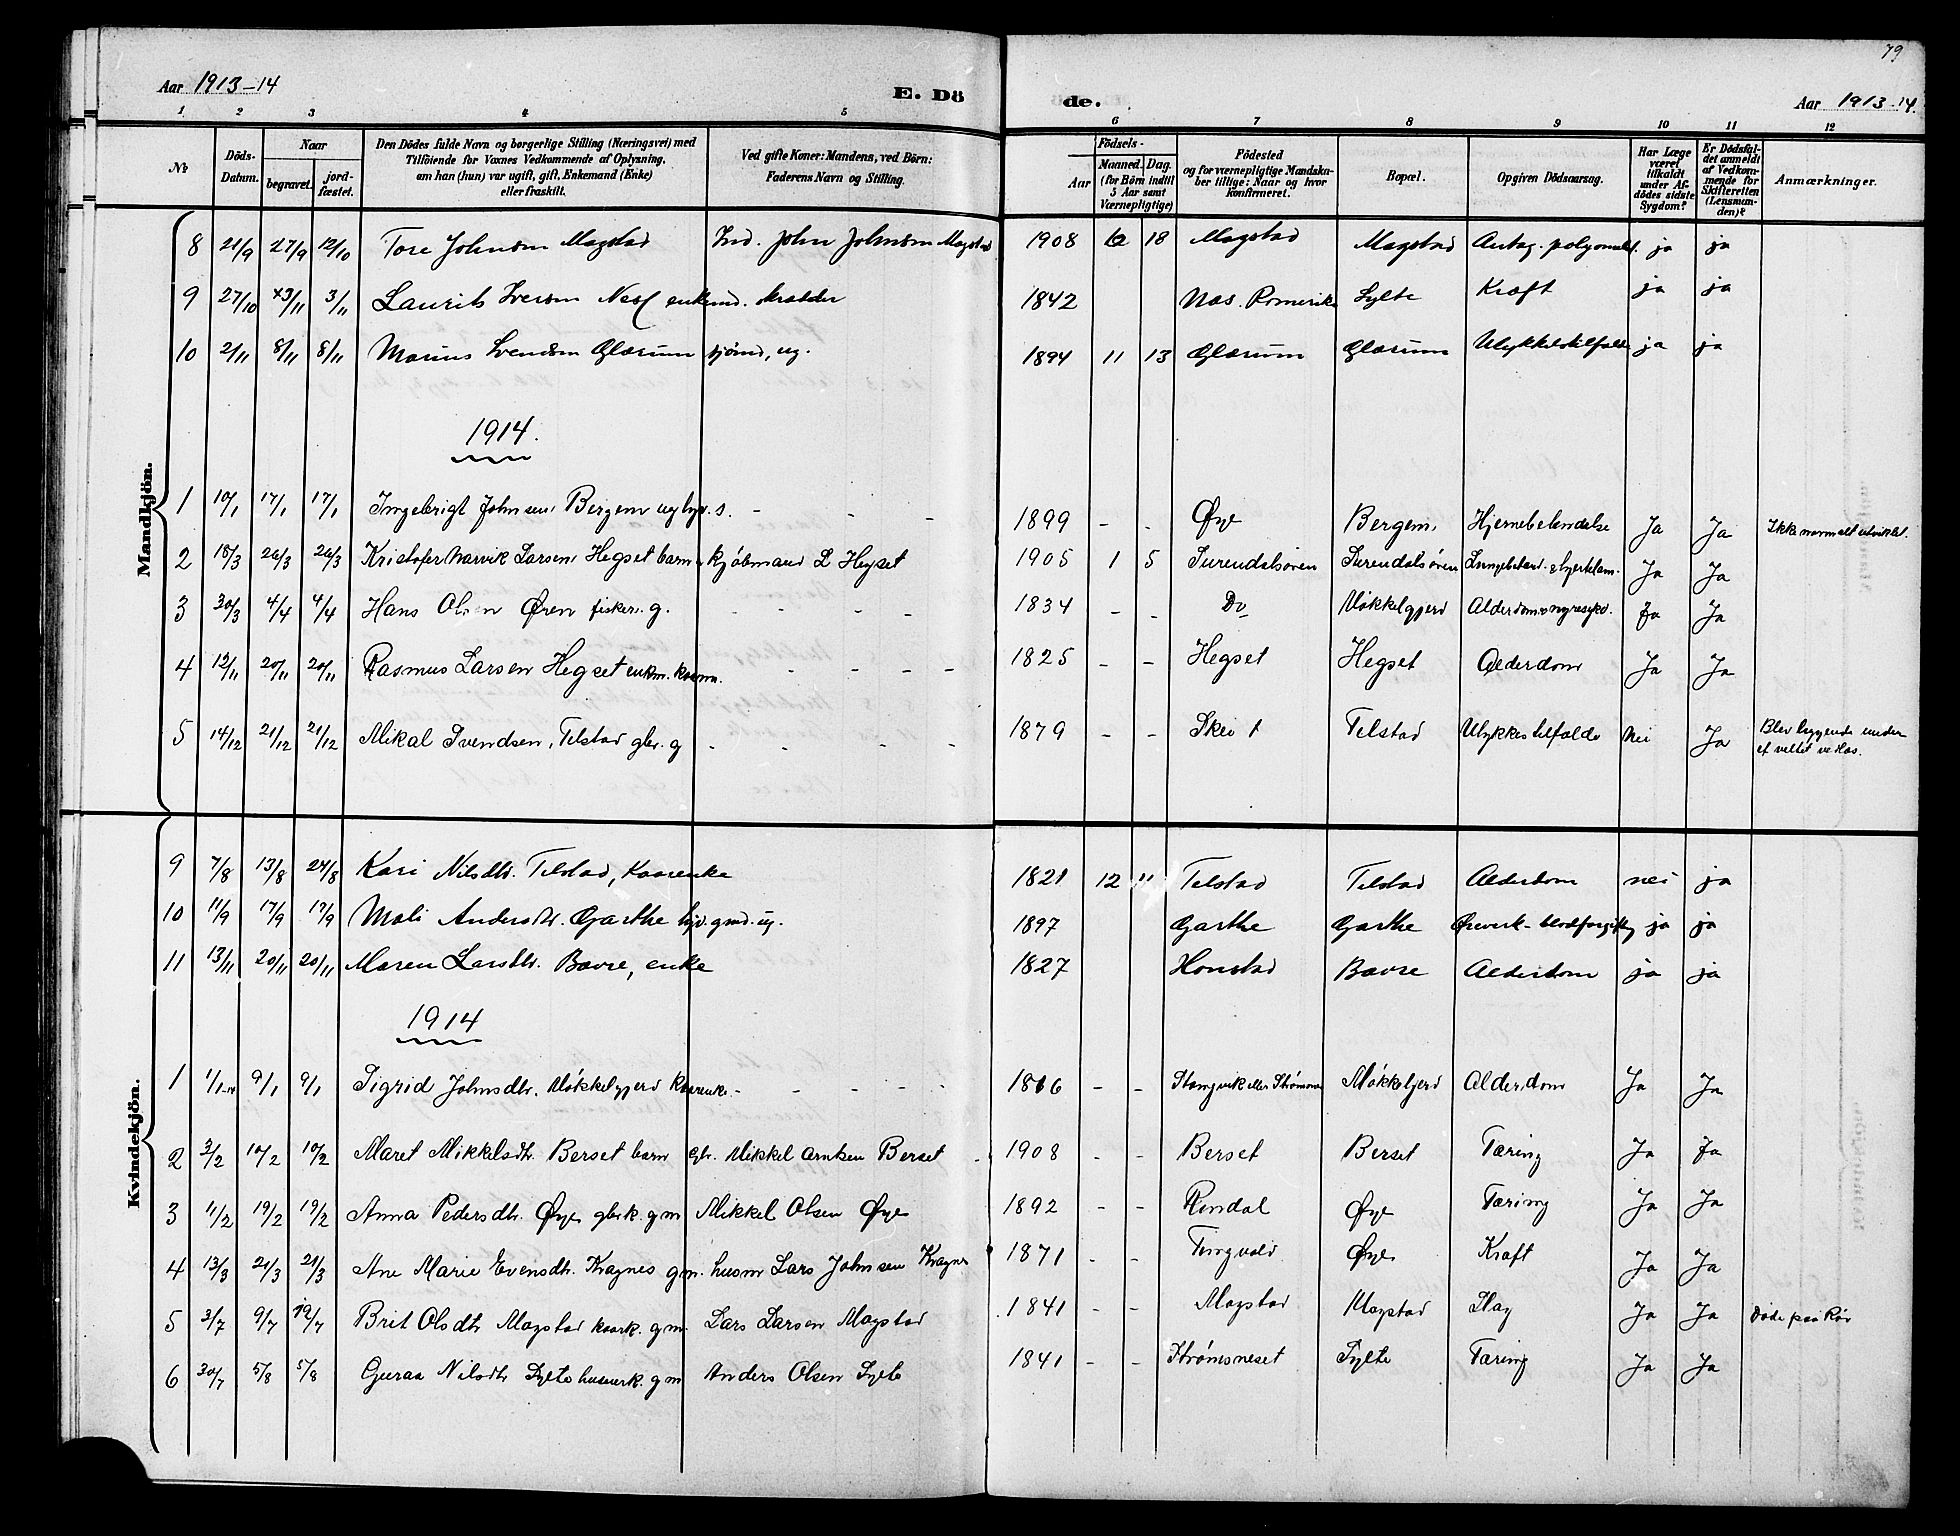 79
Aar 1913-14
E. Dö
de.
Aar 1913-14.
1 2 3 4 5 6 7 8 9 10 11 12
No
Döds-Datum.
Naar
begravet.
jord-fæstet.
Den Dödes fulde Navn og borgerlige Stilling (Næringsvei) med
Tilföiende for Voxnes Vedkommende af Oplysning,
om han (hun) var ugift, gift, Enkemand (Enke)
eller fraskilt.
Ved gifte Koner: Mandens, ved Börn:
Faderens Navn og Stilling.
Födsels-
Aar
Maaned. Dag.
(for Börn indtil
5 Aar samt
Værnepligtige)
Födested
og for værnepligtige Mandska-
ber tillige: Naar og hvor
konfirmeret.
Bopæl.
Opgiven Dödsaarsag.
Har Læge
været
tilkaldt
under Af-
dödes sidste
Sygdom?
Er Dödsfal-
det anmeldt
af Vedkom-
mende for
Skifteretten
(Lensman-
den)?
Anmærkninger.
Mandkjön.
8 21/9 27/9 12/10 Tore Johnsen Magstad Ind. John Johnsen Magstad 1908 10 18 Magstad Magstad ja ja
9 27/10 3/11 3/11 Laurits Iversen enkemd. 1842 Nes. Romerike Sylte Kræft ja ja
10 2/11 8/11 8/11 Marius Svendsen Glærum sjømd, ug. 1894 11 13 Glærum Glærum Ulykkestilfælde ja ja
1914.
1 10/1 17/1 17/1 Ingebrigt Johnsen Bergem ug gbr. s. - - - 1899 - - Øye Bergem Hjernebetendelse Ja Ja Ikke normalt utviklet.
2 18/3 26/3 26/3 Kristofer Narvik Larsen Hegset barn kjøbmand L Hegset 1905 1 5 Surendalsøren Surendalsøren Ja Ja
3 30/3 4/4 4/4 Hans Olsen Øren fisker. g. - - - - 1834 - - Do Møkkelgjerd Ja Ja
4 12/11 20/11 20/11 Rasmus Larsen Hegset enkm. kaarm. - - - - 1825 - - Hegset Hegset Alderdom Ja Ja
5 14/12 21/12 21/12 Mikal Svendsen, Telstad gbr. g - - - - 1879 - - Skei Telstad Ulykkestilfælde Nei Ja Blev liggende under
et veltet vedlas.
Kvindekjön.
9 7/8 13/8 24/8 Kari Nilsdtr. Telstad, Kaarenke 1821 12 11 Telstad Telstad Alderdom nei ja
10 11/9 17/9 17/9 Mali Andersdtr. Garthe ug. 1897 Garthe Garthe Øreverk- blodforgiftng ja ja
11 13/11 20/11 20/11 Maren Larsdtr. Bævre, enke 1827 Honstad Bævre Alderdom ja ja
1914
1 1/1-14 9/1 9/1 Sigrid Johnsdtr. Møkkelgjerd Kaarenke - - - - - 1816 - - Stangvik eller Strømmen Møkkelgjerd Alderdom Ja Ja
2 3/2 10/2 10/2 Maret Mikkelsdtr. Berset barn gbr. Mikkel Arntsen Berset - 1908 - - Berset Berset Tæring Ja Ja
3 11/2 19/2 19/2 Anna Pedersdtr. Øye gbrk. gm Mikkel Olsen Øye 1892 - - Rindal Øye Tæring Ja Ja
4 13/3 21/3 21/3 Ane Marie Evensdtr. Kragnes gm. husm Lars Johnsen Kragnes 1871 - - Tingvold Øye Kræft Ja Ja
5 3/7 9/7 19/7 Brit Olsdtr Magstad kaark. gm. Lars Larsen Magstad 1841 - - Magstad Magstad Slag Ja Ja Døde paa Rør
6 30/7 5/8 5/8 Guraa Nilsdtr Sylte husmk. gm Anders Olsen Sylte 1841 - - Strømsneset Sylte Tæring Ja Ja